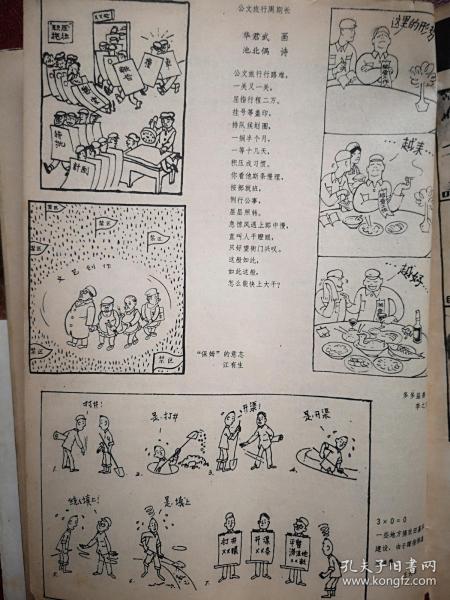 公文旅行周期长
华君武 画
池北偶 诗
公文旅行行路难，
一关又一关。
屈指行程二万。
挂号等盖印，
排队候划圈。
一搁半个月，
一等十几天。
积压成习惯。
你看他斯条慢理，
按部就班。
例行公事，
层层照转。
急惊风遇上郎中慢，
直叫人干瞪眼，
只好望衙门兴叹。
这般如此，
如此这般，
怎么能快上大干？
这里的形势
越来…
越好…
禁区
禁区
禁区
禁区
禁区
文艺创作
"保姆"的意志
江有生
打井！
是，打井
开渠！
是，开渠
给我填上！
是，填上
打井
××眼
开渠
××条
平整
3×0＝0
一些地方
建设，由于
孔夫子旧书网
www.kongfz.com